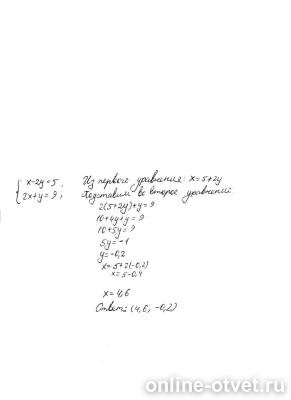 x-2y=5; Из первого уравнения: x=5+2y
2x+y=9; Подставим во второе уравнение:
2(5+2y)+y=9
10+4y+y=9
10+5y=9
5y=-1
y=-0,2
x=5+2(-0,2)
x=5-0,4
x=4,6
Ответ: (4,6; -0,2)
online-otvet.ru